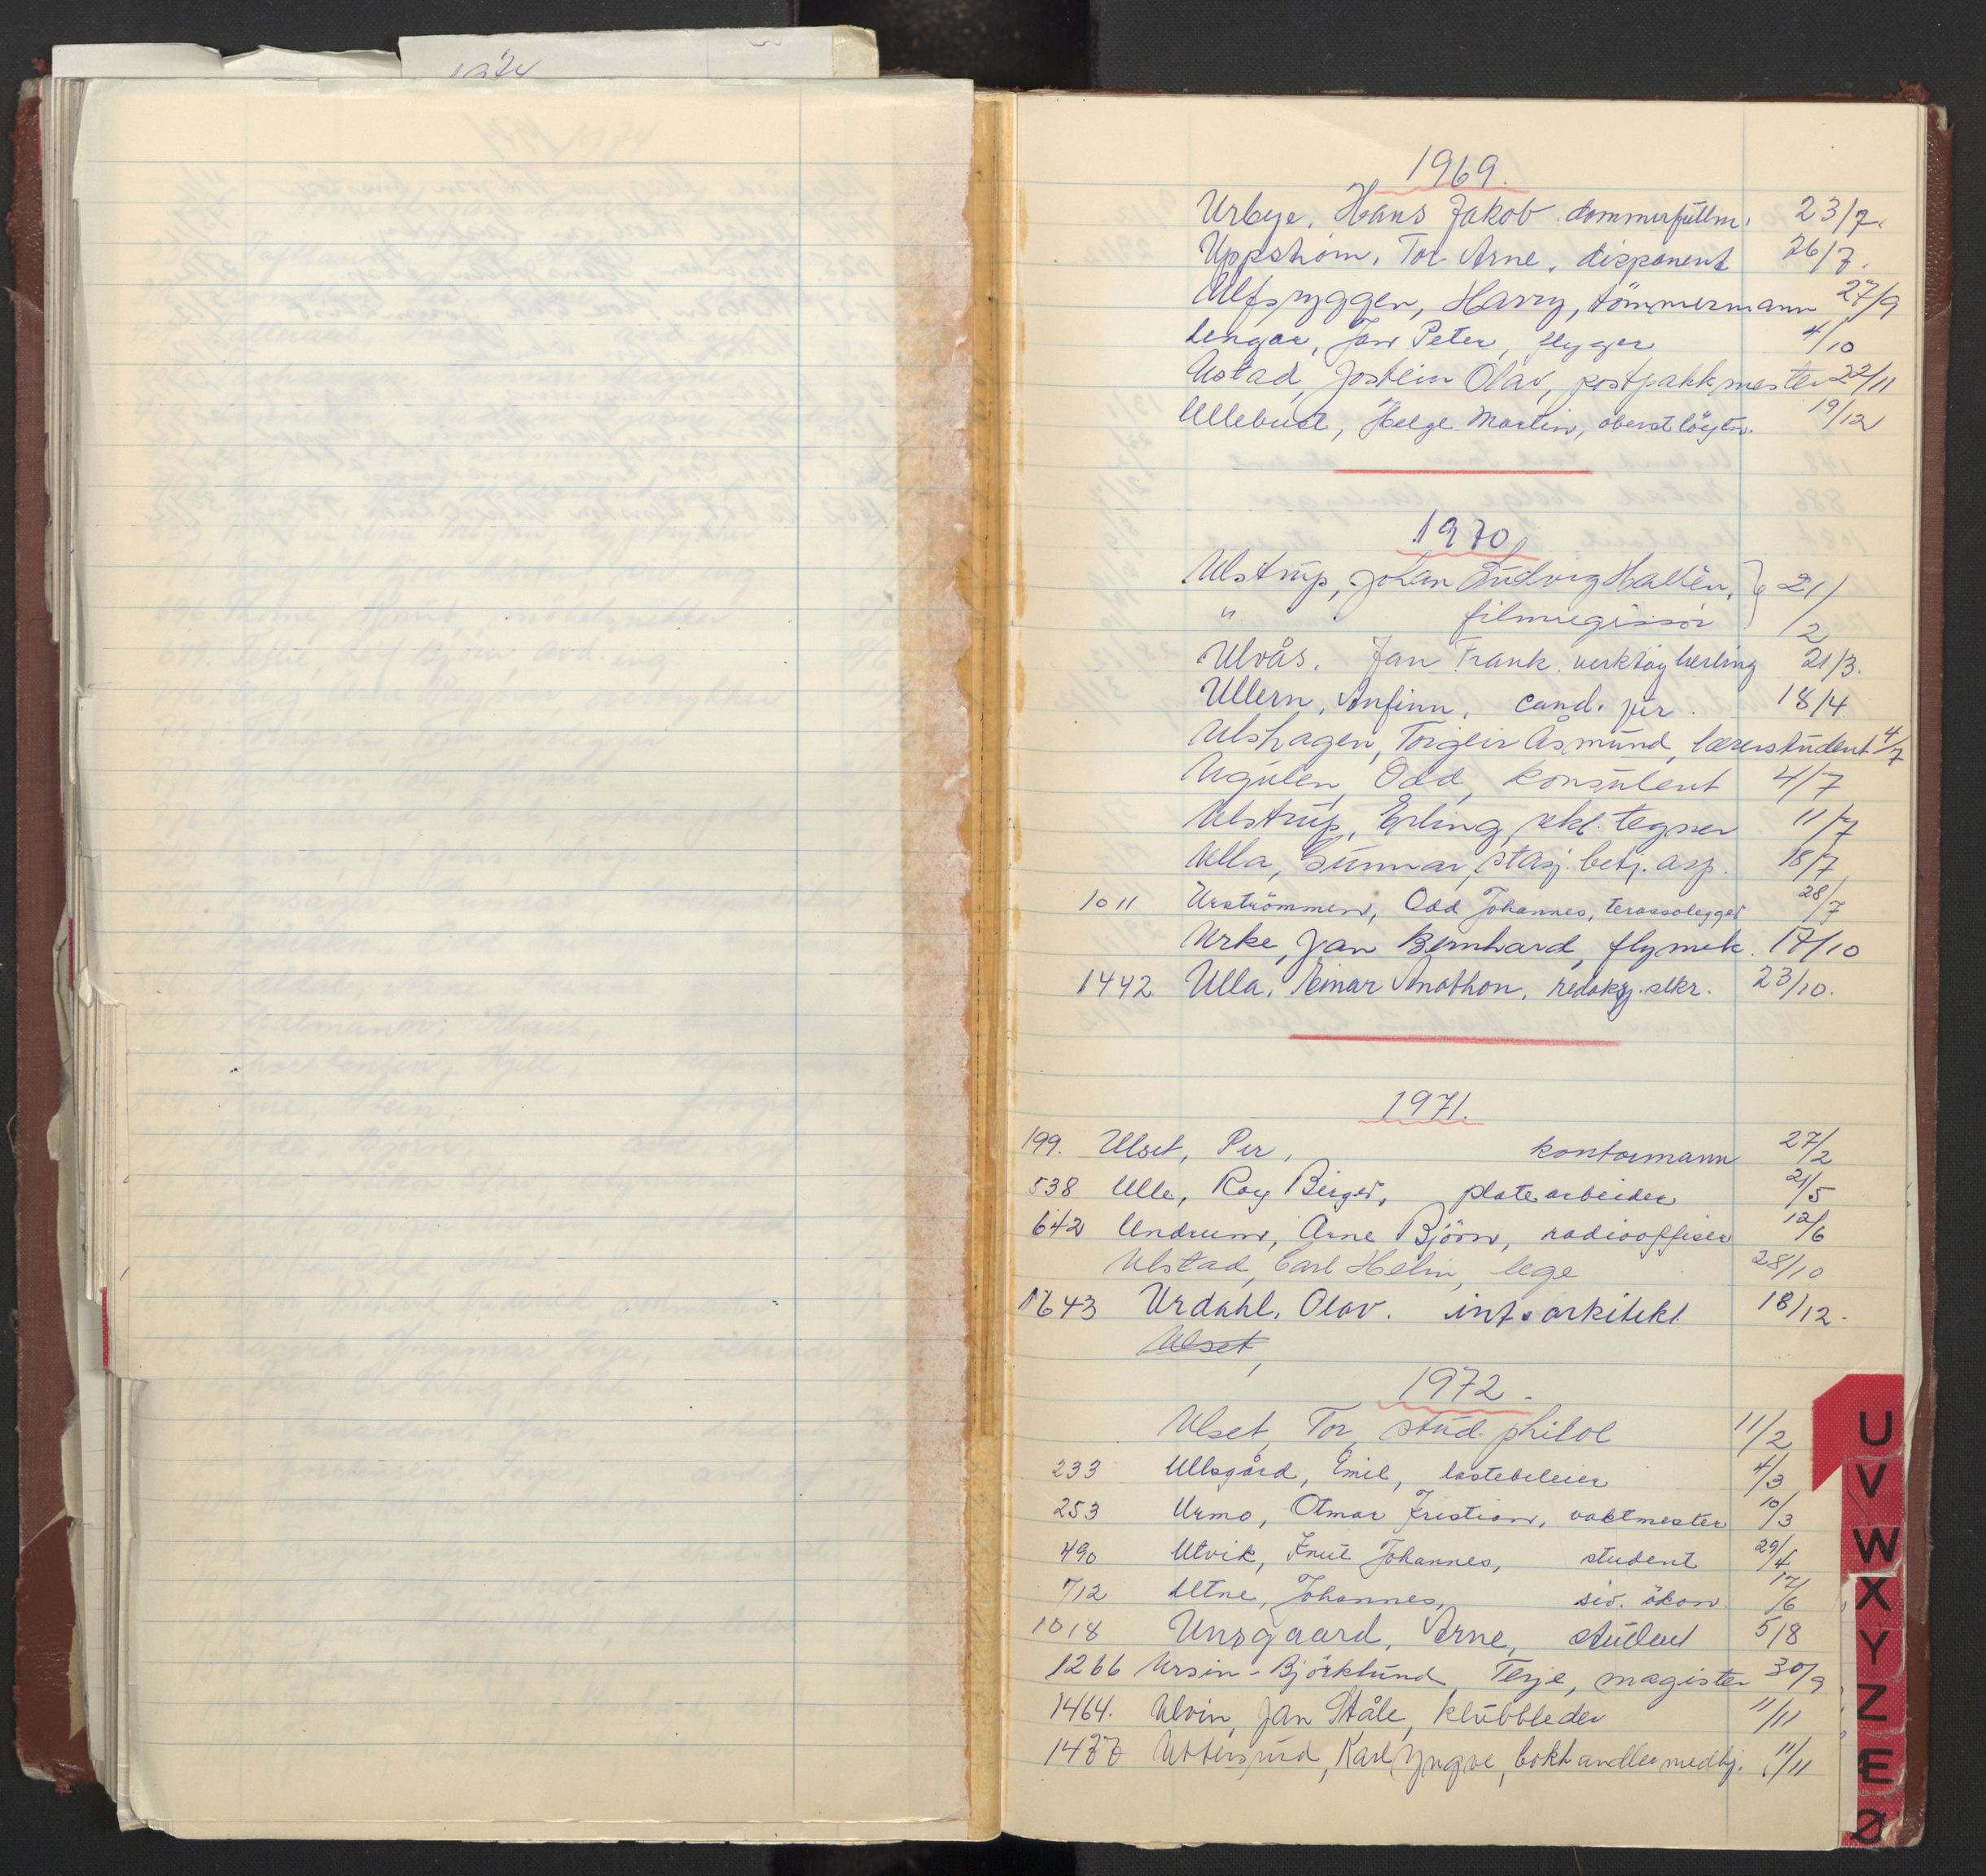 1969.
Urbye, Hans Jakob. dommerfullm. 23/7.
Uppstrøm, Tor Arne, disponent 26/7.
Ulfsryggen, Harry, tömmermann 27/9
Ungar, Jan Peter, flyger 4/10
Ustad, Jostein Olav, postpakkmester 22/11
Ullebust, Helge Martin, oberstlöytn. 19/12
1970
Ulstrup, Johan Ludvig Hallén, } 21/2
" filmregissör
Ulvås, Jan Frank. verktøyherding 21/3.
Ullern, Anfinn, cand. jur. 18/4
Ulshagen, Torgeir Åsmund, lærerstudent 4/7
Ugulen, Odd, konsulent 4/7
Ulstrup, Erling, rekl. tegner 11/7
Ulla, Gunnar, stasj. betj. asp. 18/7
1011 Urströmmen, Odd Johannes, terassolegger 28/7
Urke, Jan Bernhard, flymek. 17/10
1442 Ulla, Einar Anathon, redaksj. sekr. 23/10.
1971.
199. Ulset, Per, kontormann 27/2
538 Ulle, Roy Birger, platearbeider 21/5
642 Undrum, Arne Björn, radiooffiser 12/6
Ulstad, Carl Helm, lege 28/10
1643 Urdahl, Olav. int. arkitekt 18/12.
Ulset,
1972.
Ulset, Tor, stud. philol 11/2
233 Ullsgård, Emil, lastebileier 4/3
253 Urmo, Otmar Kristian, vaktmester 10/3
490 Utvik, Knut Johannes, student 29/4
712 Utne, Johannes, siv. ökon. 17/6
1018 Unsgaard, Arne, student 5/8
1266 Ursin-Björklund, Terje, magister 30/9
1464. Ulvin, Jan Ståle, klubbleder 11/11
1477 Uttersrud, Karl Yngve, bokhandlermedhj. 11/11
U
V
W
X
Y
Z
Æ
Ø